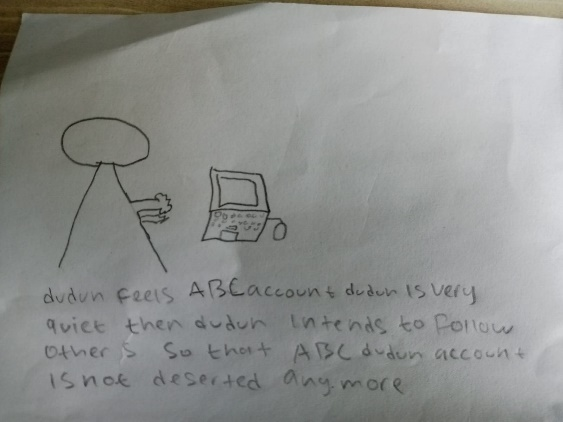 dudun feels ABC account dudun is very
quiet then dudun intends to follow
others so that ABC dudun account
is not deserted any more